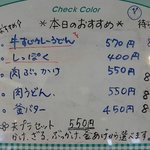 Check Color
*本日のおすすめ*
牛すじカレーうどん 570円 8
しっぽく 400円
肉ぶっかけ 550円 8
肉うどん 550円 8
釜バター 450円 8
天プラセット 550円
かけ、ざる、ぶっかけ、釜あげから選べます。